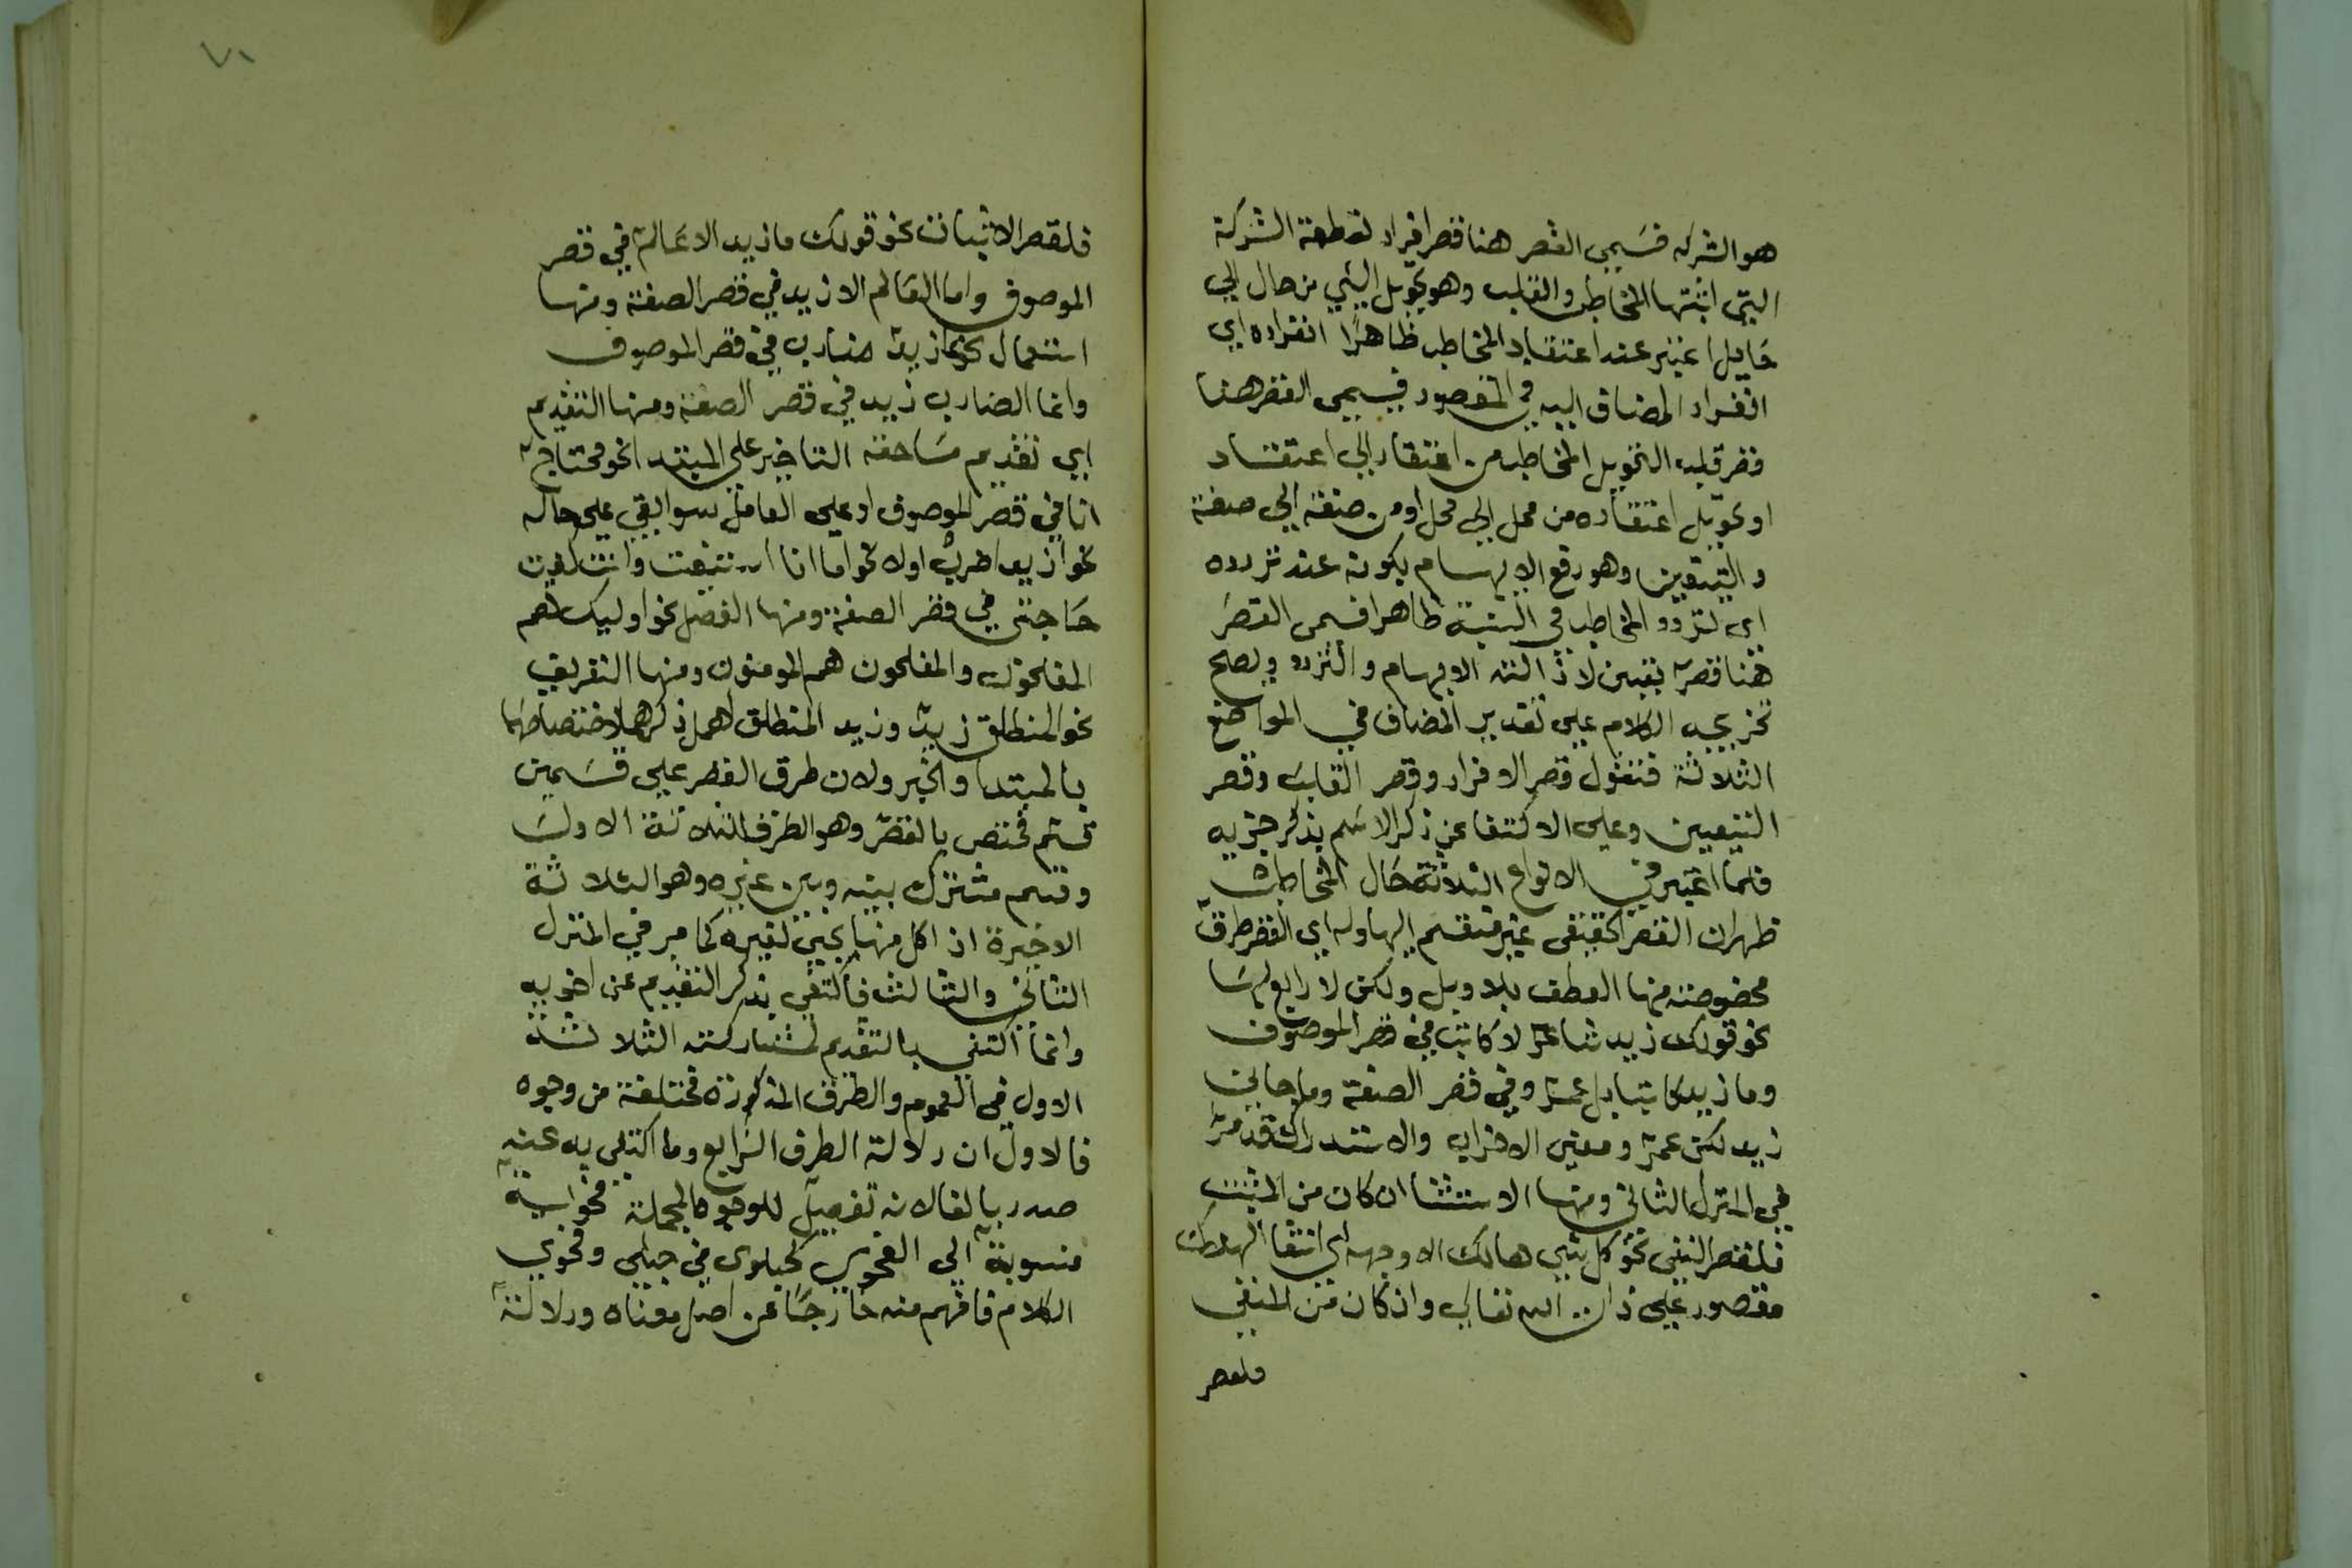 هو الشركه فسمي القصر هنا قصر افراد لقطعة الشركة
التي اثبتها المخاطب والقلب وهو تحويل الشي من حال الي
حال اعتبر عند اعتقاد المخاطب ظاهرًا انفراده اي
انفراد المضاف اليه في المقصود فيسمي القصر هنا
قصر قلب التحويل المخاطب من اعتقاد الي اعتقاد
او تحويل اعتقاده من محل الي محل او من صفة الي صفة
والتعيين وهو رفع الابهام بكونه عند تردده
اي لتردد المخاطب في النسبة ظاهرا فسمي القصر
هنا قصر تعيين لازالته الابهام والتردد ويصلح
تخريجه الكلام علي تقدير المضاف في المواضع
الثلاثة فنقول قصر الافراد وقصر القلب وقصر
التعيين وعلي الاكتفا عن ذكر الاسم بذكر جزيه
فلما اعتبر في الانواع الثلاثة حال المخاطب
ظهر ان القصر الحقيقي غير منقسم اليها وله اي القصر طرق
مخصوصة منها العطف بلا وبل ولكن لا رابع لها
نحو قولك زيد شاعر لا كاتب في قصر الموصوف
وما زيد كاتبا بل عمرو في قصر الصفة وما جاني
زيد لكن عمرو ومعني الاضراب والاستدراك قد مر
في المنزل الثاني ومنها الاستثنا ان كان من المثبت
فلقصر النفي نحو كل شي هالك الا وجهه اي انتفا الهلاك
مقصور علي ذات الله تعالي وان كان من المنفي
فلقصر
٧١
فلقصر الاثبات نحو قولك ما زيد الا عالم في قصر
الموصوف واما العالم الا زيد في قصر الصفة ومنها
استعمال نحو انما زيد ضارب في قصر الموصوف
وانما الضارب زيد في قصر الصفة ومنها التقديم
اي تقديم ما حقه التاخير علي المبتدا نحو محتاج
انا في قصر الموصوف او علي العامل سوا بقي علي حاله
نحو ازيد اضرب اولا نحو اما انا
حاجتي في قصر الصفة ومنها الفصل نحو اوليك هم
المفلحون والمفلحون هم المومنون ومنها التعريف
نحو المنطلق زيد وزيد المنطلق اهمل ذكرهما لاختصاصهما
بالمبتدا والخبر ولان طرق القصر علي قسمين
قسم مختص بالقصر وهو الطرق الثلاثة الاول
وقسم مشترك بينه وبين غيره وهو الثلاثة
الاخيرة اذ كل منها يجي لغيره كما مر في المنزل
الثاني والثالث فاكتفي بذكر التقديم عن اخويه
وانما اكتفي بالتقديم لمشاركته الثلاثة
الاول في العموم والطرق المذكورة مختلفة من وجوه
فالاول ان دلالة الطرق الرابع وما اكتفي به عنه
صدر بالفا لانه تفصيل للوجوه المجملة فحواية
منسوبة الي الفحوي كحبلوي في حبلي وفحوي
الكلام ما فهم منه خارجًا عن اصل معناه ودلالة